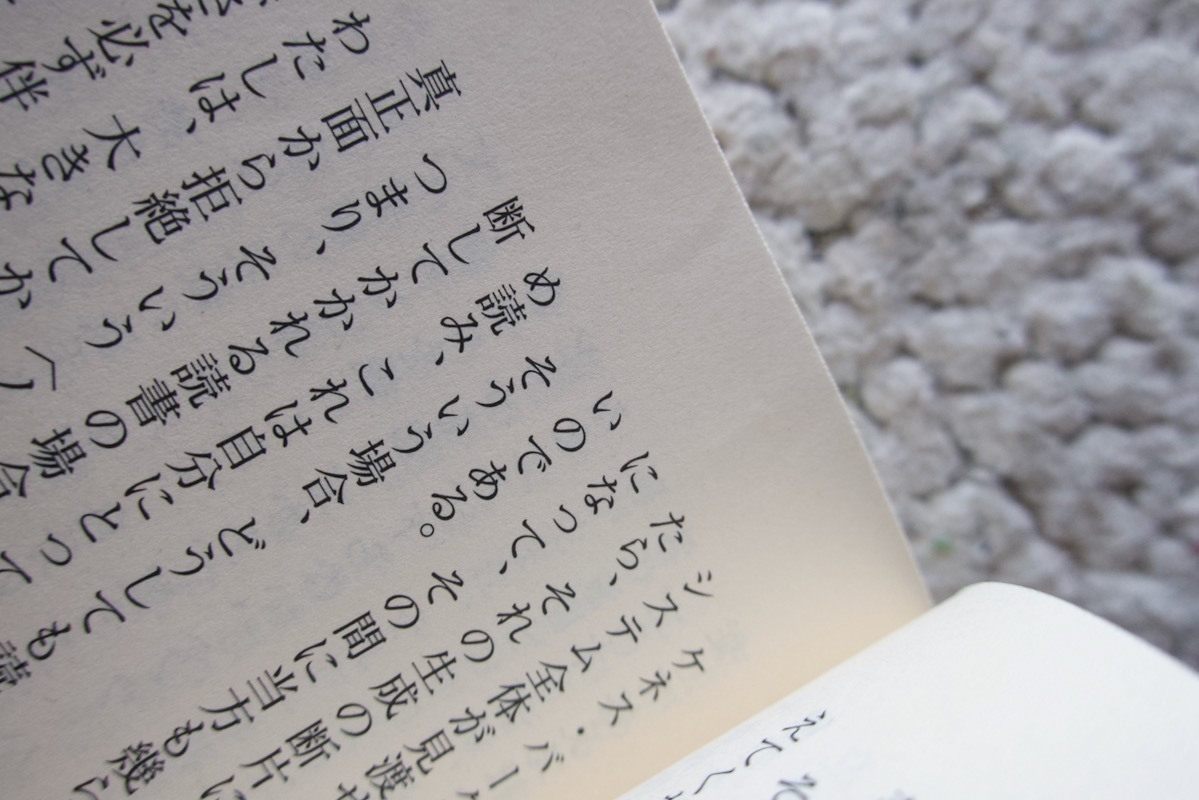 えてく
そ
ケネス・バー
システム全体が見渡せ
たら、それの生成の断片に
になって、その間に当方も幾ら
いのである。
そういう場合、どうしても読
め読み、これは自分にとって
断してかかれる読書の場合
つまり、そういう〈ノ
真正面から拒絶してか
わたしは、大きな
を必ず伴